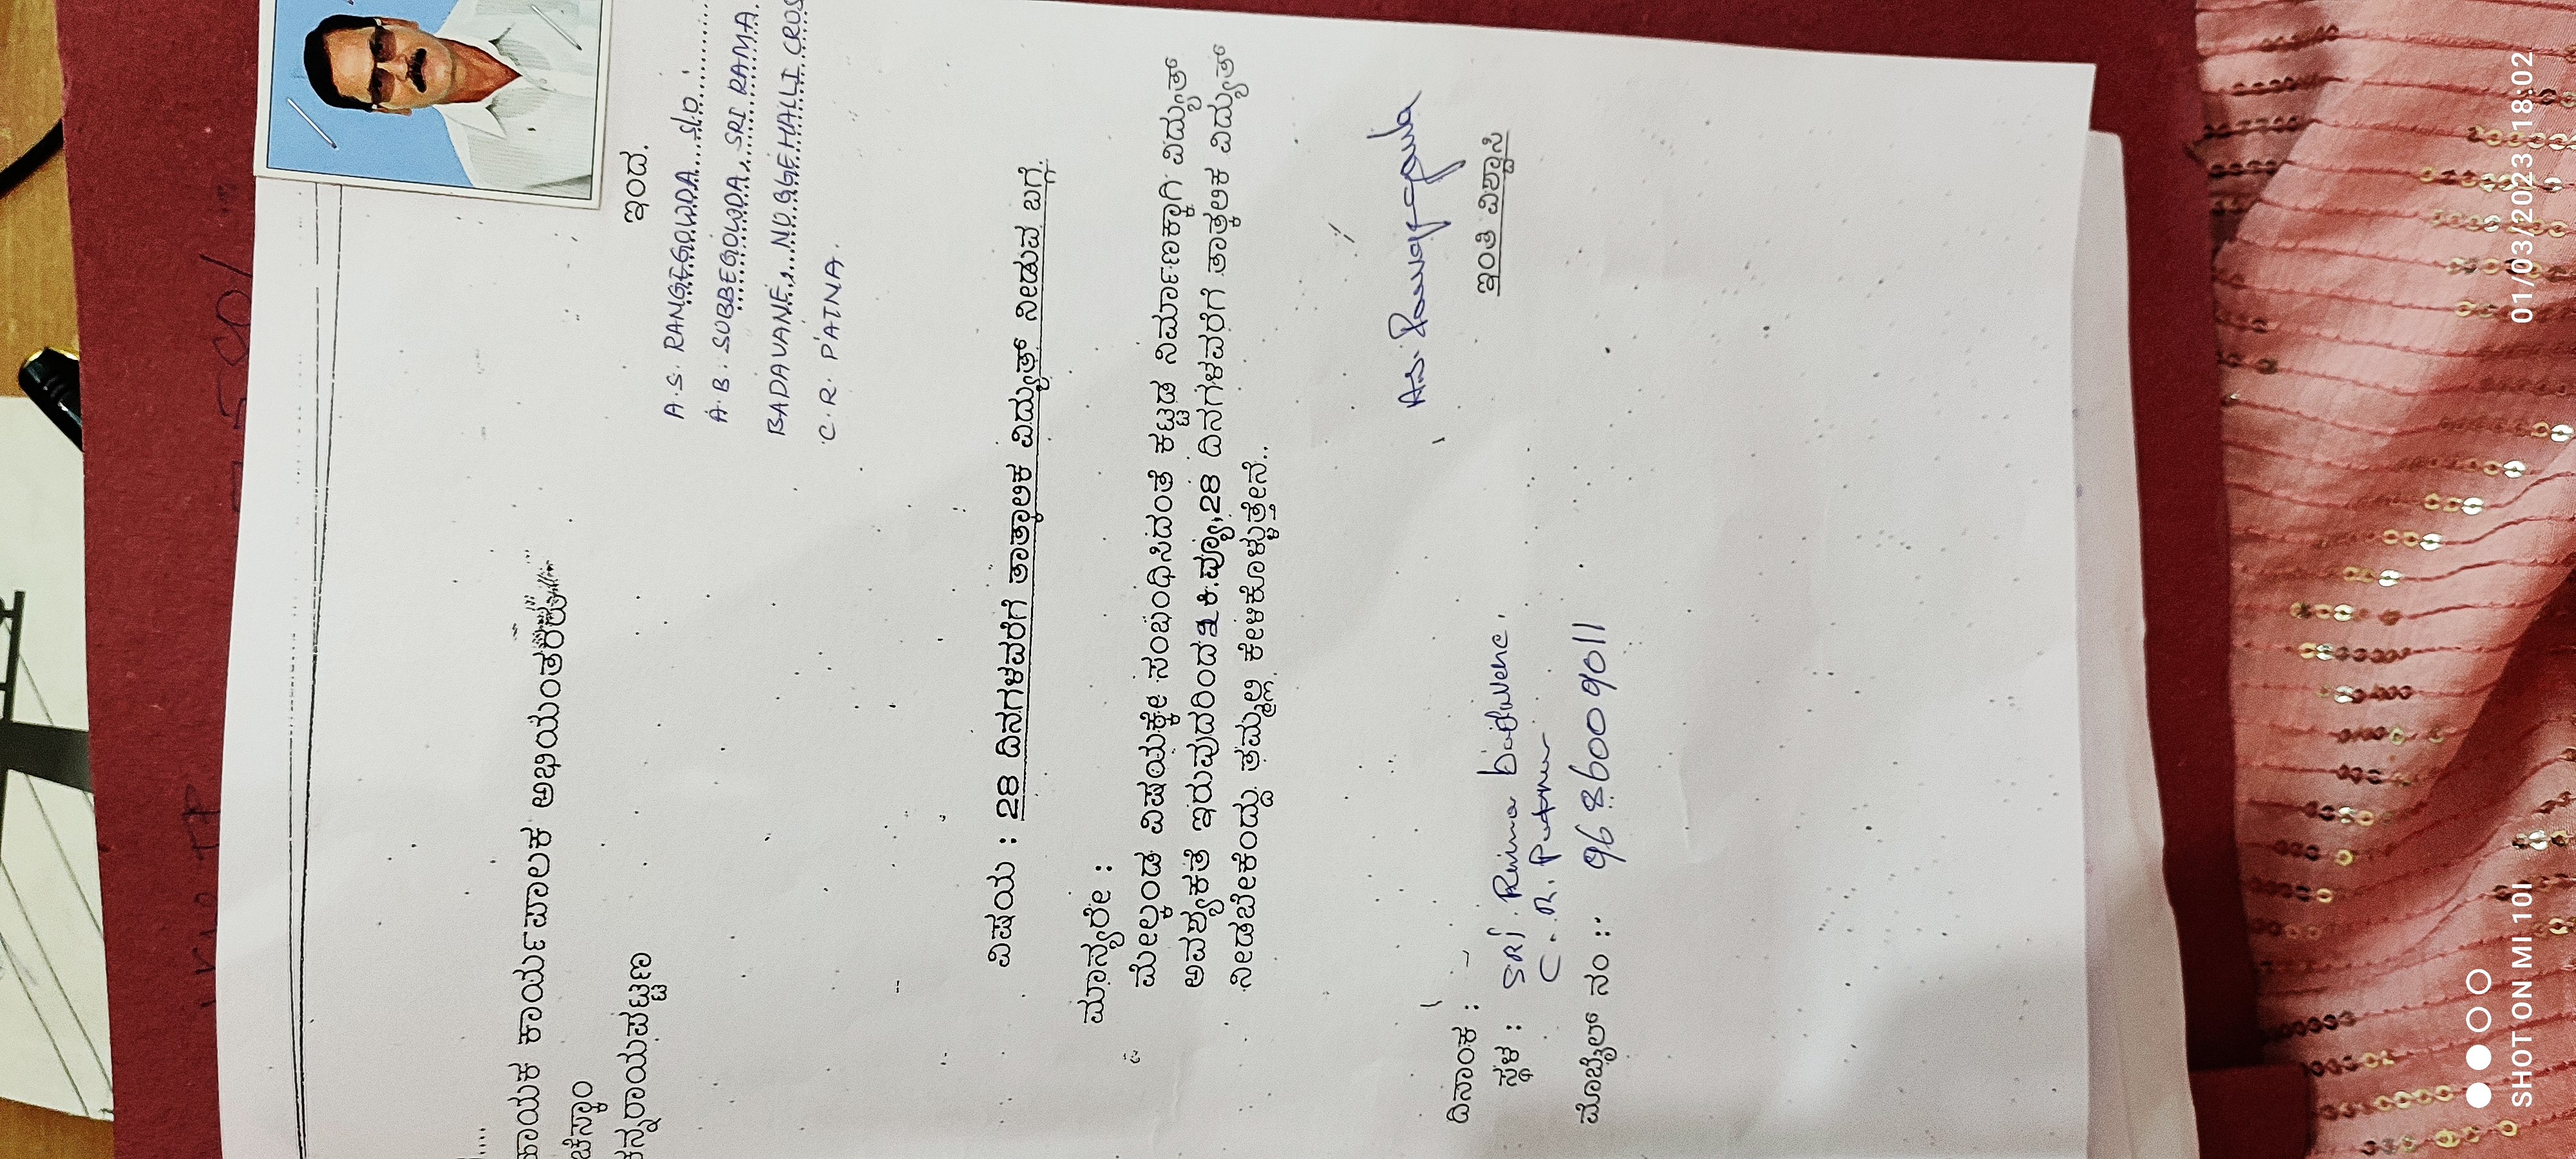 ಹಾಯಕ ಕಾರ್ಯಪಾಲಕ ಅಭಿಯಂತರರು
ಚೆಸ್ಕಾಂ
ಕನ್ನರಾಯಪಟ್ಟಣ
ಇಂದ.
A.S. RANGEGOWDA S/O
A.B. SUBBEGOWDA, SRI RAMA.
BADAVANE, NUGGEHALLI CROS
C.R. PATNA.
ವಿಷಯ : 28 ದಿನಗಳವರೆಗೆ ತಾತ್ಕಾಲಿಕ ವಿದ್ಯುತ್ ನೀಡುವ ಬಗ್ಗೆ.
ಮಾನ್ಯರೇ :
ಮೇಲ್ಕಂಡ ವಿಷಯಕ್ಕೇ ಸಂಬಂಧಿಸಿದಂತೆ ಕಟ್ಟಡ ನಿರ್ಮಾಣಕ್ಕಾಗಿ ವಿದ್ಯುತ್
ಅವಶ್ಯಕತೆ ಇರುವುದರಿಂದ ಕಿ.ವ್ಯಾ,28 ದಿನಗಳವರೆಗೆ ತಾತ್ಕಲಿಕ ವಿದ್ಯುತ್
ನೀಡಬೇಕೆಂದು ತಮ್ಮಲ್ಲಿ ಕೇಳಿಕೊಳ್ಳುತ್ತೇನೆ..
ಇಂತಿ ವಿಶ್ವಾಸಿ
ದಿನಾಂಕ :
ಸ್ಥಳ : SRI Rama badavene.
C. R. Patna
ಮೊಬೈಲ್ ನಂ : 9686009011
SHOT ON MI 10I
01/03/2023 18:02